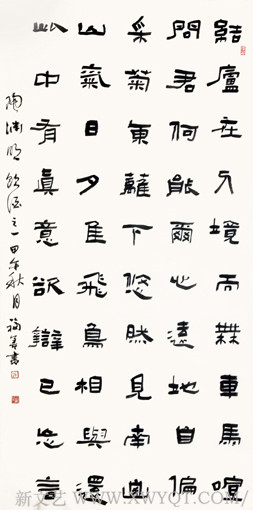 結廬在人境而無車馬喧
問君何能爾心遠地自偏
采菊東籬下悠然見南山
山氣日夕佳飛鳥相與還
此中有真意欲辯已忘言
陶淵明飲酒之一甲午秋月福善書
新文艺 WWW.XWYQY.COM/